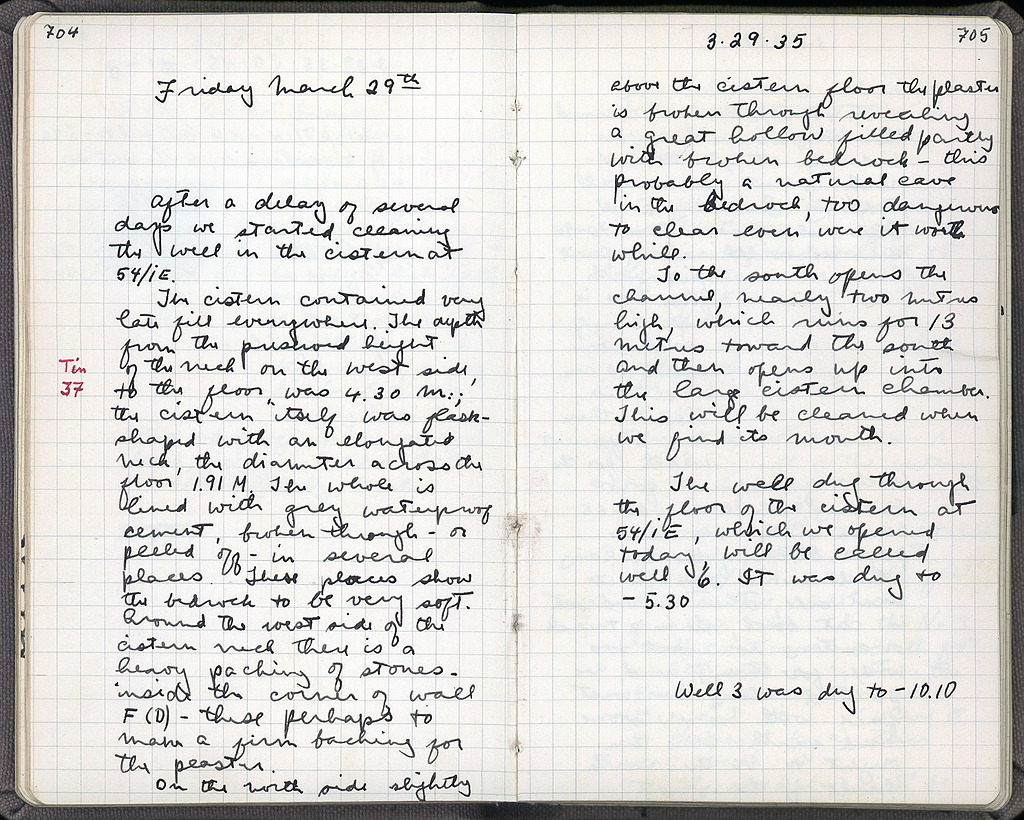 704
Friday March 29th
After a delay of several
days we started cleaning
the well in the cistern at
54/ΙΕ.
The cistern contained very
late fill everywhere. The depth
from the preserved height
of the neck on the west side,
Tin
37
to the floor was 4.30 m.;
the cistern itself was flask-
shaped with an elongated
neck, the diameter across the
floor 1.91 M. The whole is
lined with grey waterproof
cement, broken through - or
peeled off - in several
places. These places show
the bedrock to be very soft.
Around the west side of the
cistern neck there is a
heavy packing of stones -
inside the corner of wall
F (D) - these perhaps to
make a firm backing for
the plaster.
On the north side slightly
3.29.35
705
above the cistern floor the plaster
is broken through revealing
a great hollow filled partly
with broken bedrock - this
probably a natural cave
in the bedrock, too dangerous
to clear even were it worth
while.
To the south opens the
channel, nearly two metres
high, which runs for 13
metres toward the south
and then opens up into
the large cistern chamber.
This will be cleaned when
we find its mouth.
The well dug through
the floor of the cistern at
54/ΙΕ, which we opened
today, will be called
well 6. It was dug to
- 5.30
Well 3 was dug to -10.10